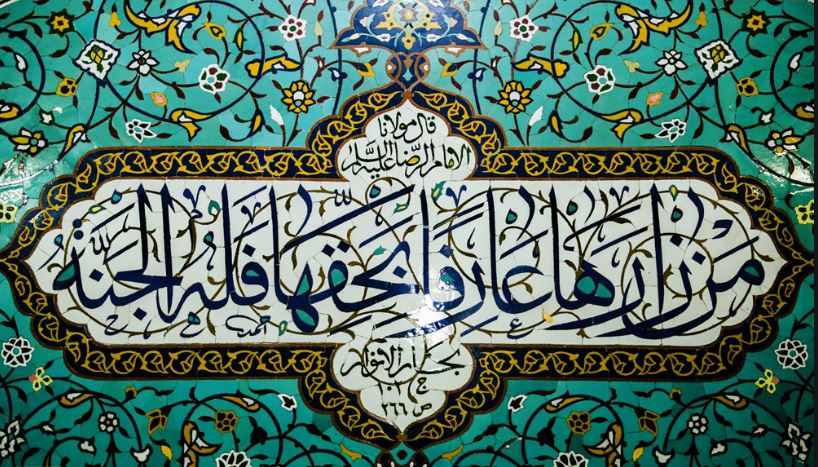 قال مولانا
الامام الرضا علیه السلام
مَن زارَهَا عَارِفًا بِحَقِّهَا فَلَهُ الجَنَّةُ
بحار الانوار
ج ١٠٢
ص ٢٦٦